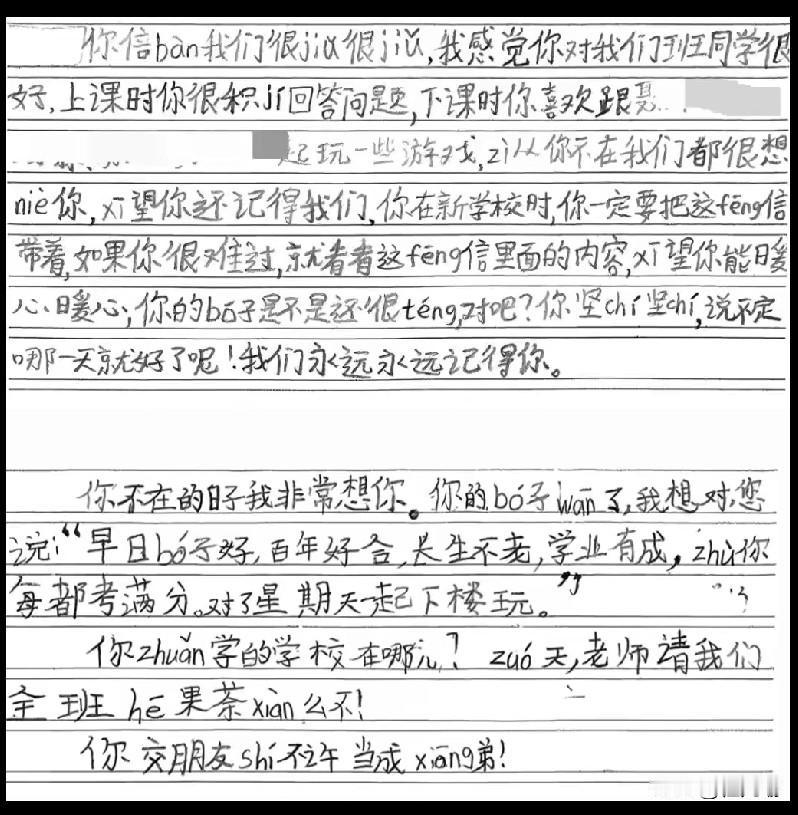 你信bàn我们很jiǔ很jiǔ,我感觉你对我们班同学很
好,上课时你很积jí回答问题,下课时你喜欢跟
起玩一些游戏,zì从你不在我们都很想
niè你,xī望你还记得我们,你在新学校时,你一定要把这fēng信
带着,如果你很难过,就看看这fēng信里面的内容,xī望你能暖
心暖心,你的bó子是不是还很téng,对吧?你坚chí坚chí,说不定
哪一天就好了呢!我们永远永远记得你。
你不在的日子我非常想你。你的bó子wān了,我想对您
说:“早日bó子好,百年好合,长生不老,学业有成,zhù你
每都考满分。对了星期天一起下楼玩。”
你zhuǎn学的学校在哪儿?zuó天,老师请我们
全班hē果茶xiàn么不!
你交朋友shí不许当成xiōng弟!